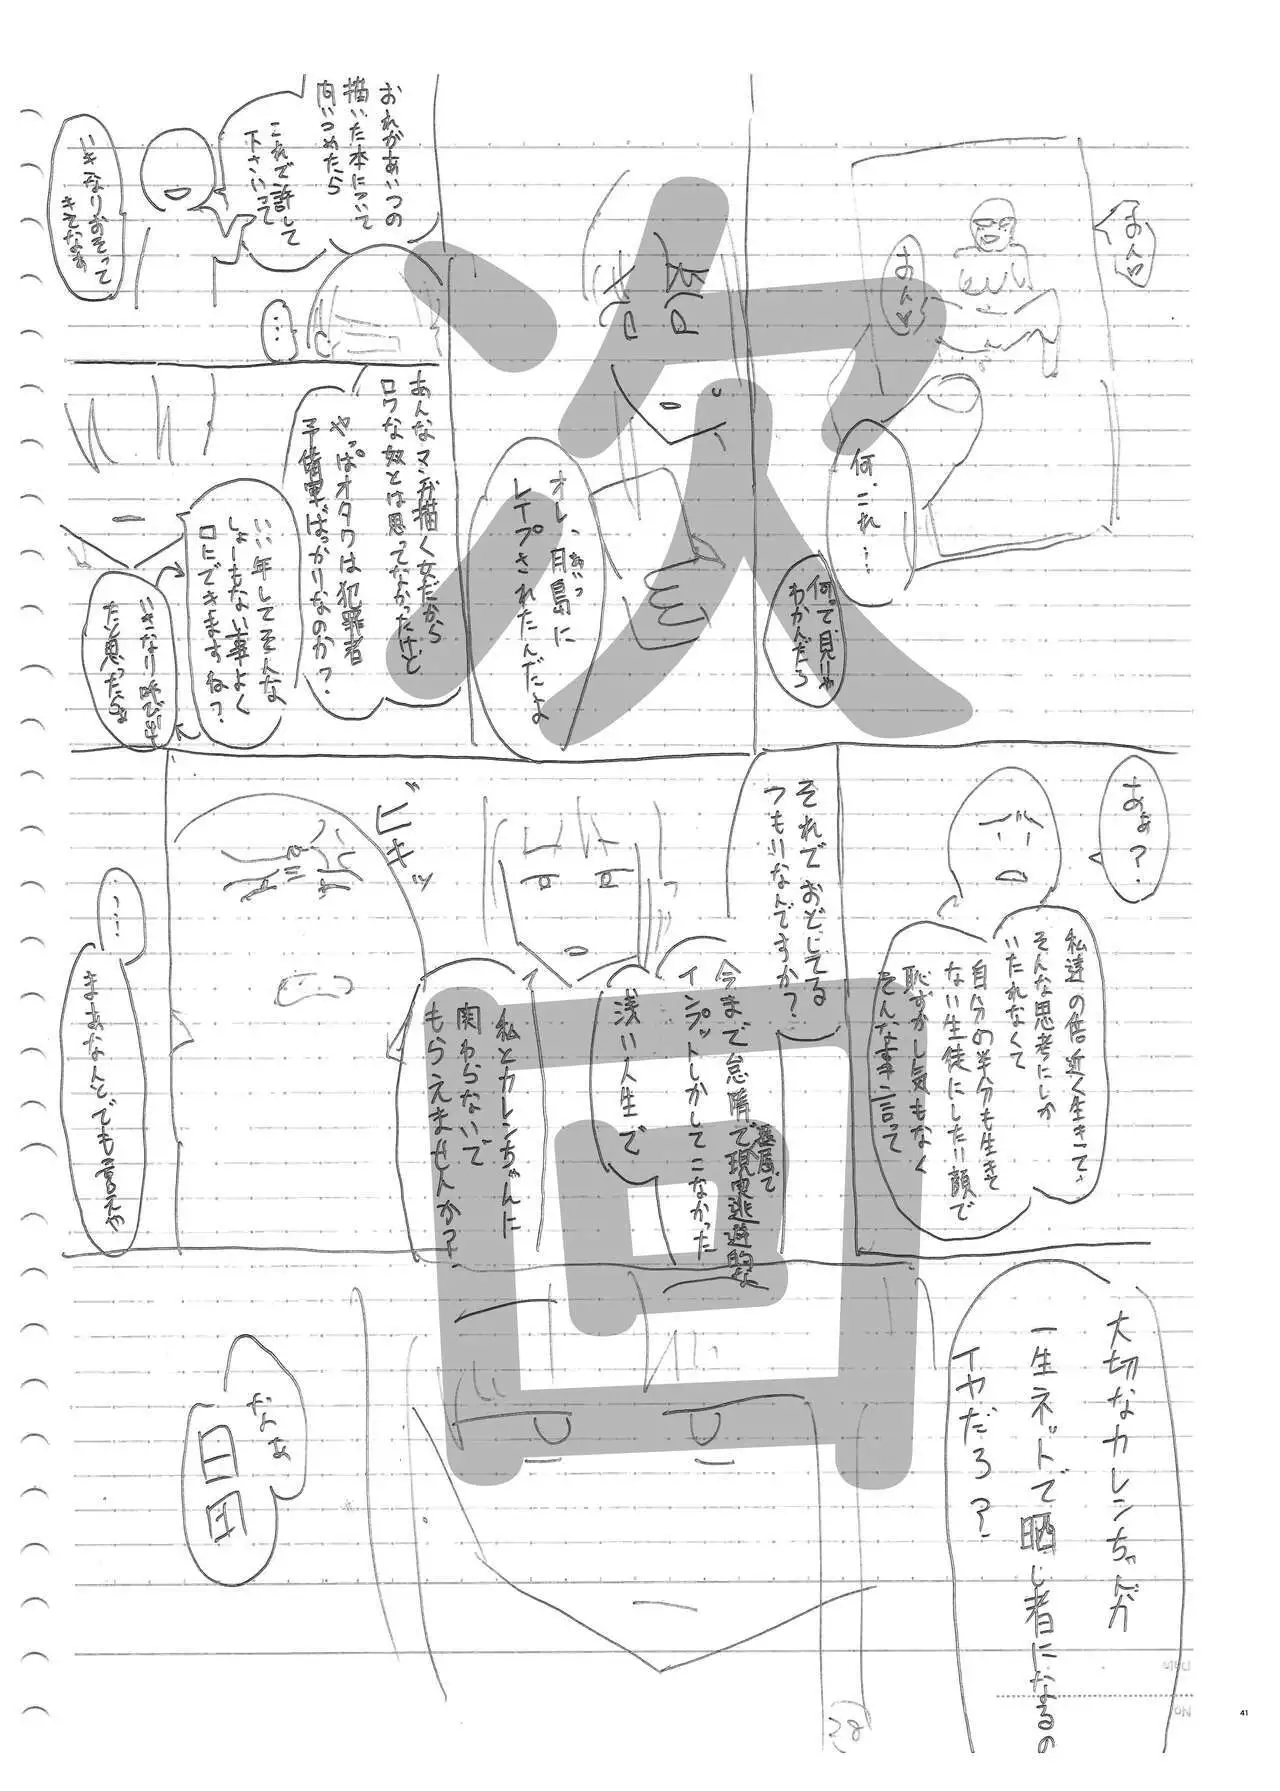 あん♡
あん♡
何、これ…
何って見りゃ
わかんだろ
オレ、月島に
レイプされたんだよ
おれがあいつの
描いた本について
問いつめたら
これで許して
下さいって
いきなりおそって
きてなぁ
…
あんなマンガ描く女だから
ロクな奴とは思ってなかったけど
やっぱオタクは犯罪者
予備軍ばっかりなのか?
いい年してそんな
しょーもない事よく
口にできますね?
いきなり呼び出し
たと思ったらぁ
あぁ?
私達の倍近く生きてて、
そんな思考にしか
いたれなくて
自分の半分も生きて
ない生徒にしたり顔で
恥ずかし気もなく
そんな事言って
それでおどしてる
つもりなんですか?
今まで怠惰で現実逃避的な
インプットしかしてこなかった
浅い人生で
私とカレンちゃんに
関わらないで
もらえませんか?
ビキッ
…
まぁなんとでも言えや
大切なカレンちゃんが
一生ネットで晒し者になるの
イヤだろ?
なぁ
次回
Date
No
41